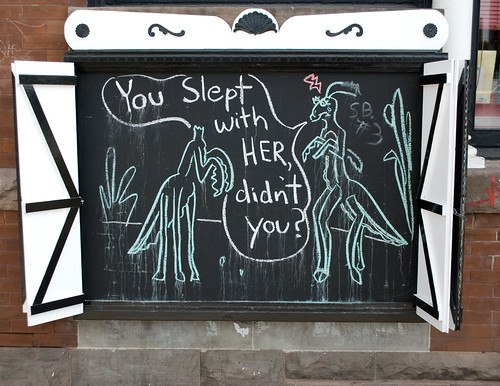 You Slept
with
HER,
didn't
you?
S.B.